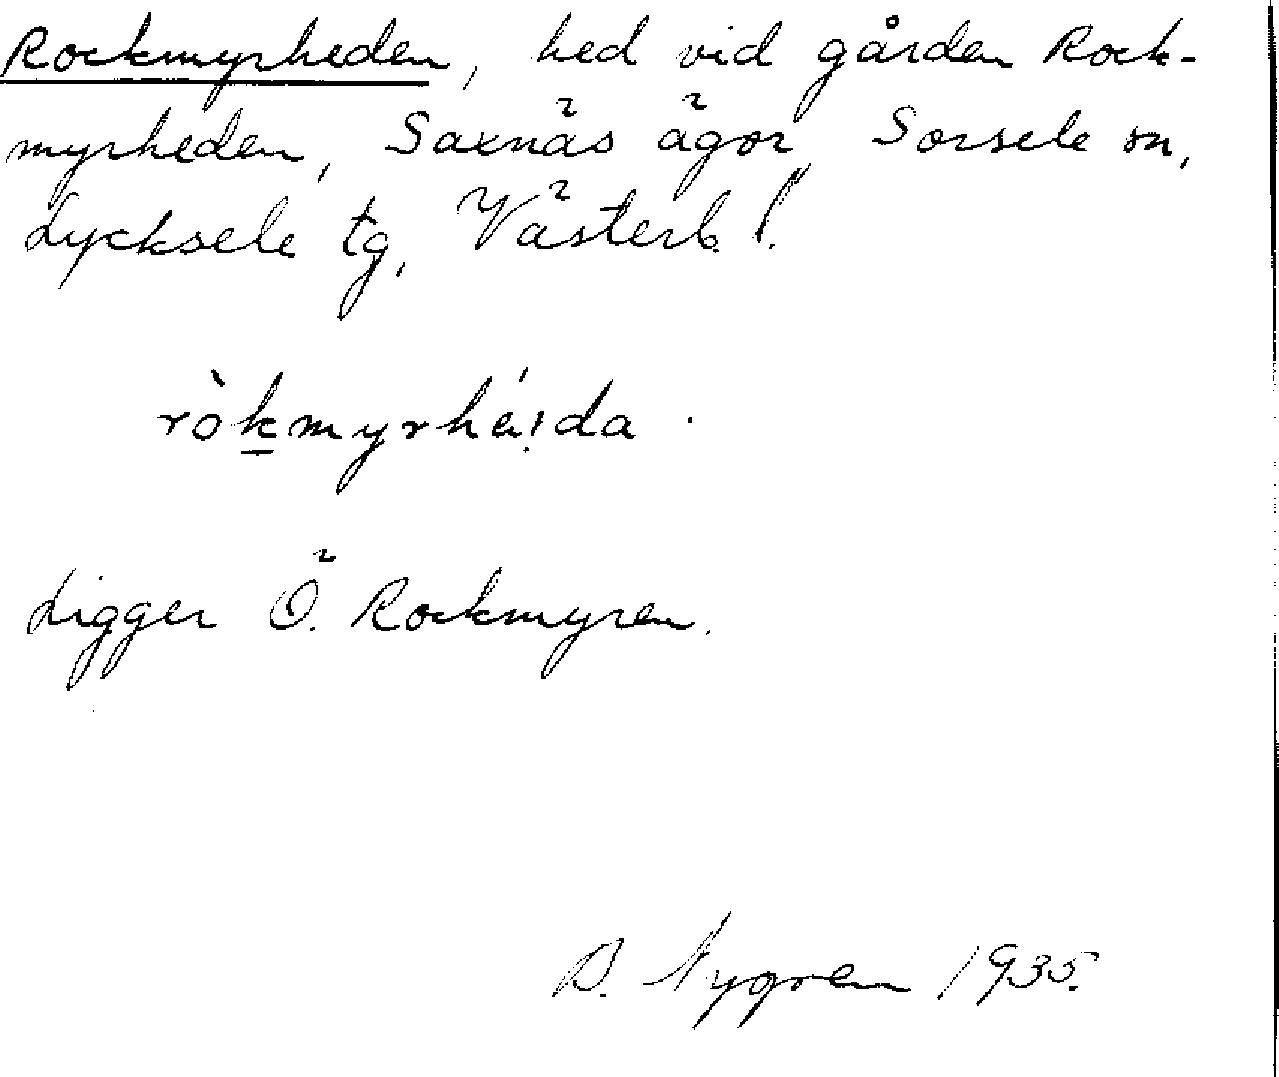 Rockmyrheden, hed vid gården Rock-
myrheden, Saxnäs ägor, Sorsele sn,
Lycksele tg, Västerb. l.
ròkmyrhéi̯da.
Ligger Ö. Rockmyren.
B. Nygren 1935.